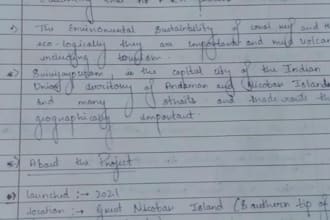 The Environmental Sustainability of coral reef and
eco-logically they are important and mud volcano
including tourism.
as the capital city of the Indian
Union territory of Andaman and Nicobar Islands
and many straits and trade route th
geographically important.
About the Project
launched :→ 2021
location :→ Great Nicobar Island (Southern tip of